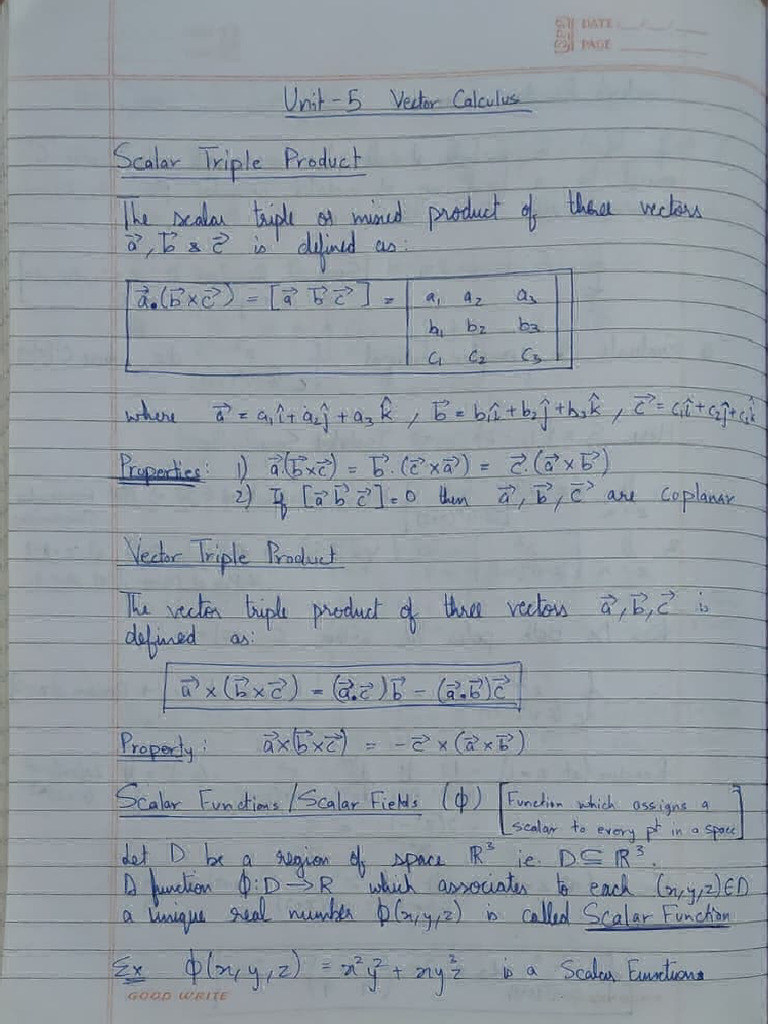 SPB DATE
PAGE
Unit-5 Vector Calculus
Scalar Triple Product
The scalar triple or mixed product of three vectors
a⃗, b⃗ & c⃗ is defined as:
a⃗.(b⃗×c⃗) = [a⃗ b⃗ c⃗] = | a₁ a₂ a₃ |
| b₁ b₂ b₃ |
| c₁ c₂ c₃ |
where a⃗ = a₁î + a₂ĵ + a₃k̂, b⃗ = b₁î + b₂ĵ + b₃k̂, c⃗ = c₁î + c₂ĵ + c₃k̂
Properties: 1) a⃗.(b⃗×c⃗) = b⃗.(c⃗×a⃗) = c⃗.(a⃗×b⃗)
2) If [a⃗ b⃗ c⃗] = 0 then a⃗, b⃗, c⃗ are coplanar
Vector Triple Product
The vector triple product of three vectors a⃗, b⃗, c⃗ is
defined as:
a⃗×(b⃗×c⃗) = (a⃗.c⃗)b⃗ - (a⃗.b⃗)c⃗
Property: a⃗×(b⃗×c⃗) = -c⃗×(a⃗×b⃗)
Scalar Functions/Scalar Fields (ϕ) [Function which assigns a
scalar to every pt in a space]
Let D be a region of space ℝ³ ie. D⊆ℝ³.
A function ϕ:D→R which associates to each (x,y,z)∈D
a unique real number ϕ(x,y,z) is called Scalar Function
Ex ϕ(x,y,z) = x²y² + xy²z is a Scalar Function
GOOD WRITE